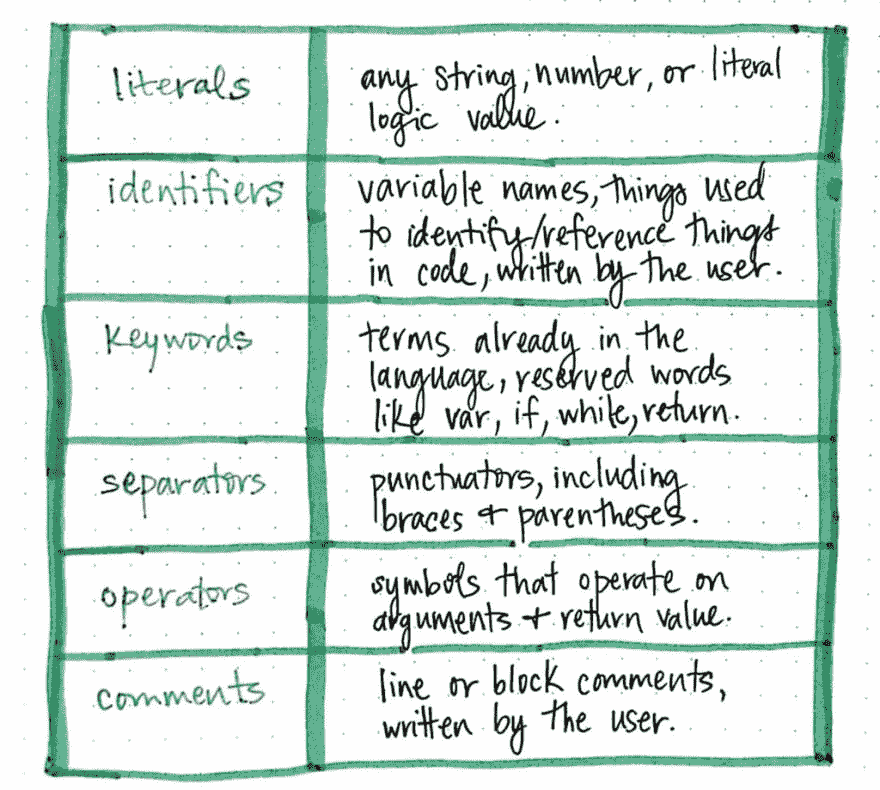 literals
any string, number, or literal
logic value.
identifiers
variable names, things used
to identify/reference things
in code, written by the user.
keywords
terms already in the
language, reserved words
like var, if, while, return.
separators
punctuators, including
braces + parentheses.
operators
symbols that operate on
arguments + return value.
comments
line or block comments,
written by the user.